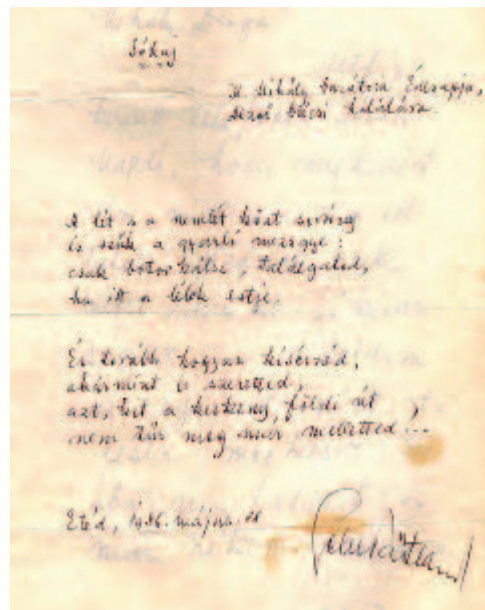 Sóhaj
K. Mihály barátom Édesapja,
Dezső bácsi halálára.
A lét s a nemlét közt
és szűk a gyarló mezsgye:
csak botorkálsz, találgatod,
ha itt a lélek estje.
És tovább hogyan kísérnéd,
akármint is szeretted,
azt, kit a keskeny földi út
nem tűr meg már melletted...
Etéd, 1986. május